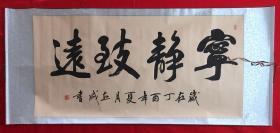 寧靜致遠
歲在丁酉年夏月立成書